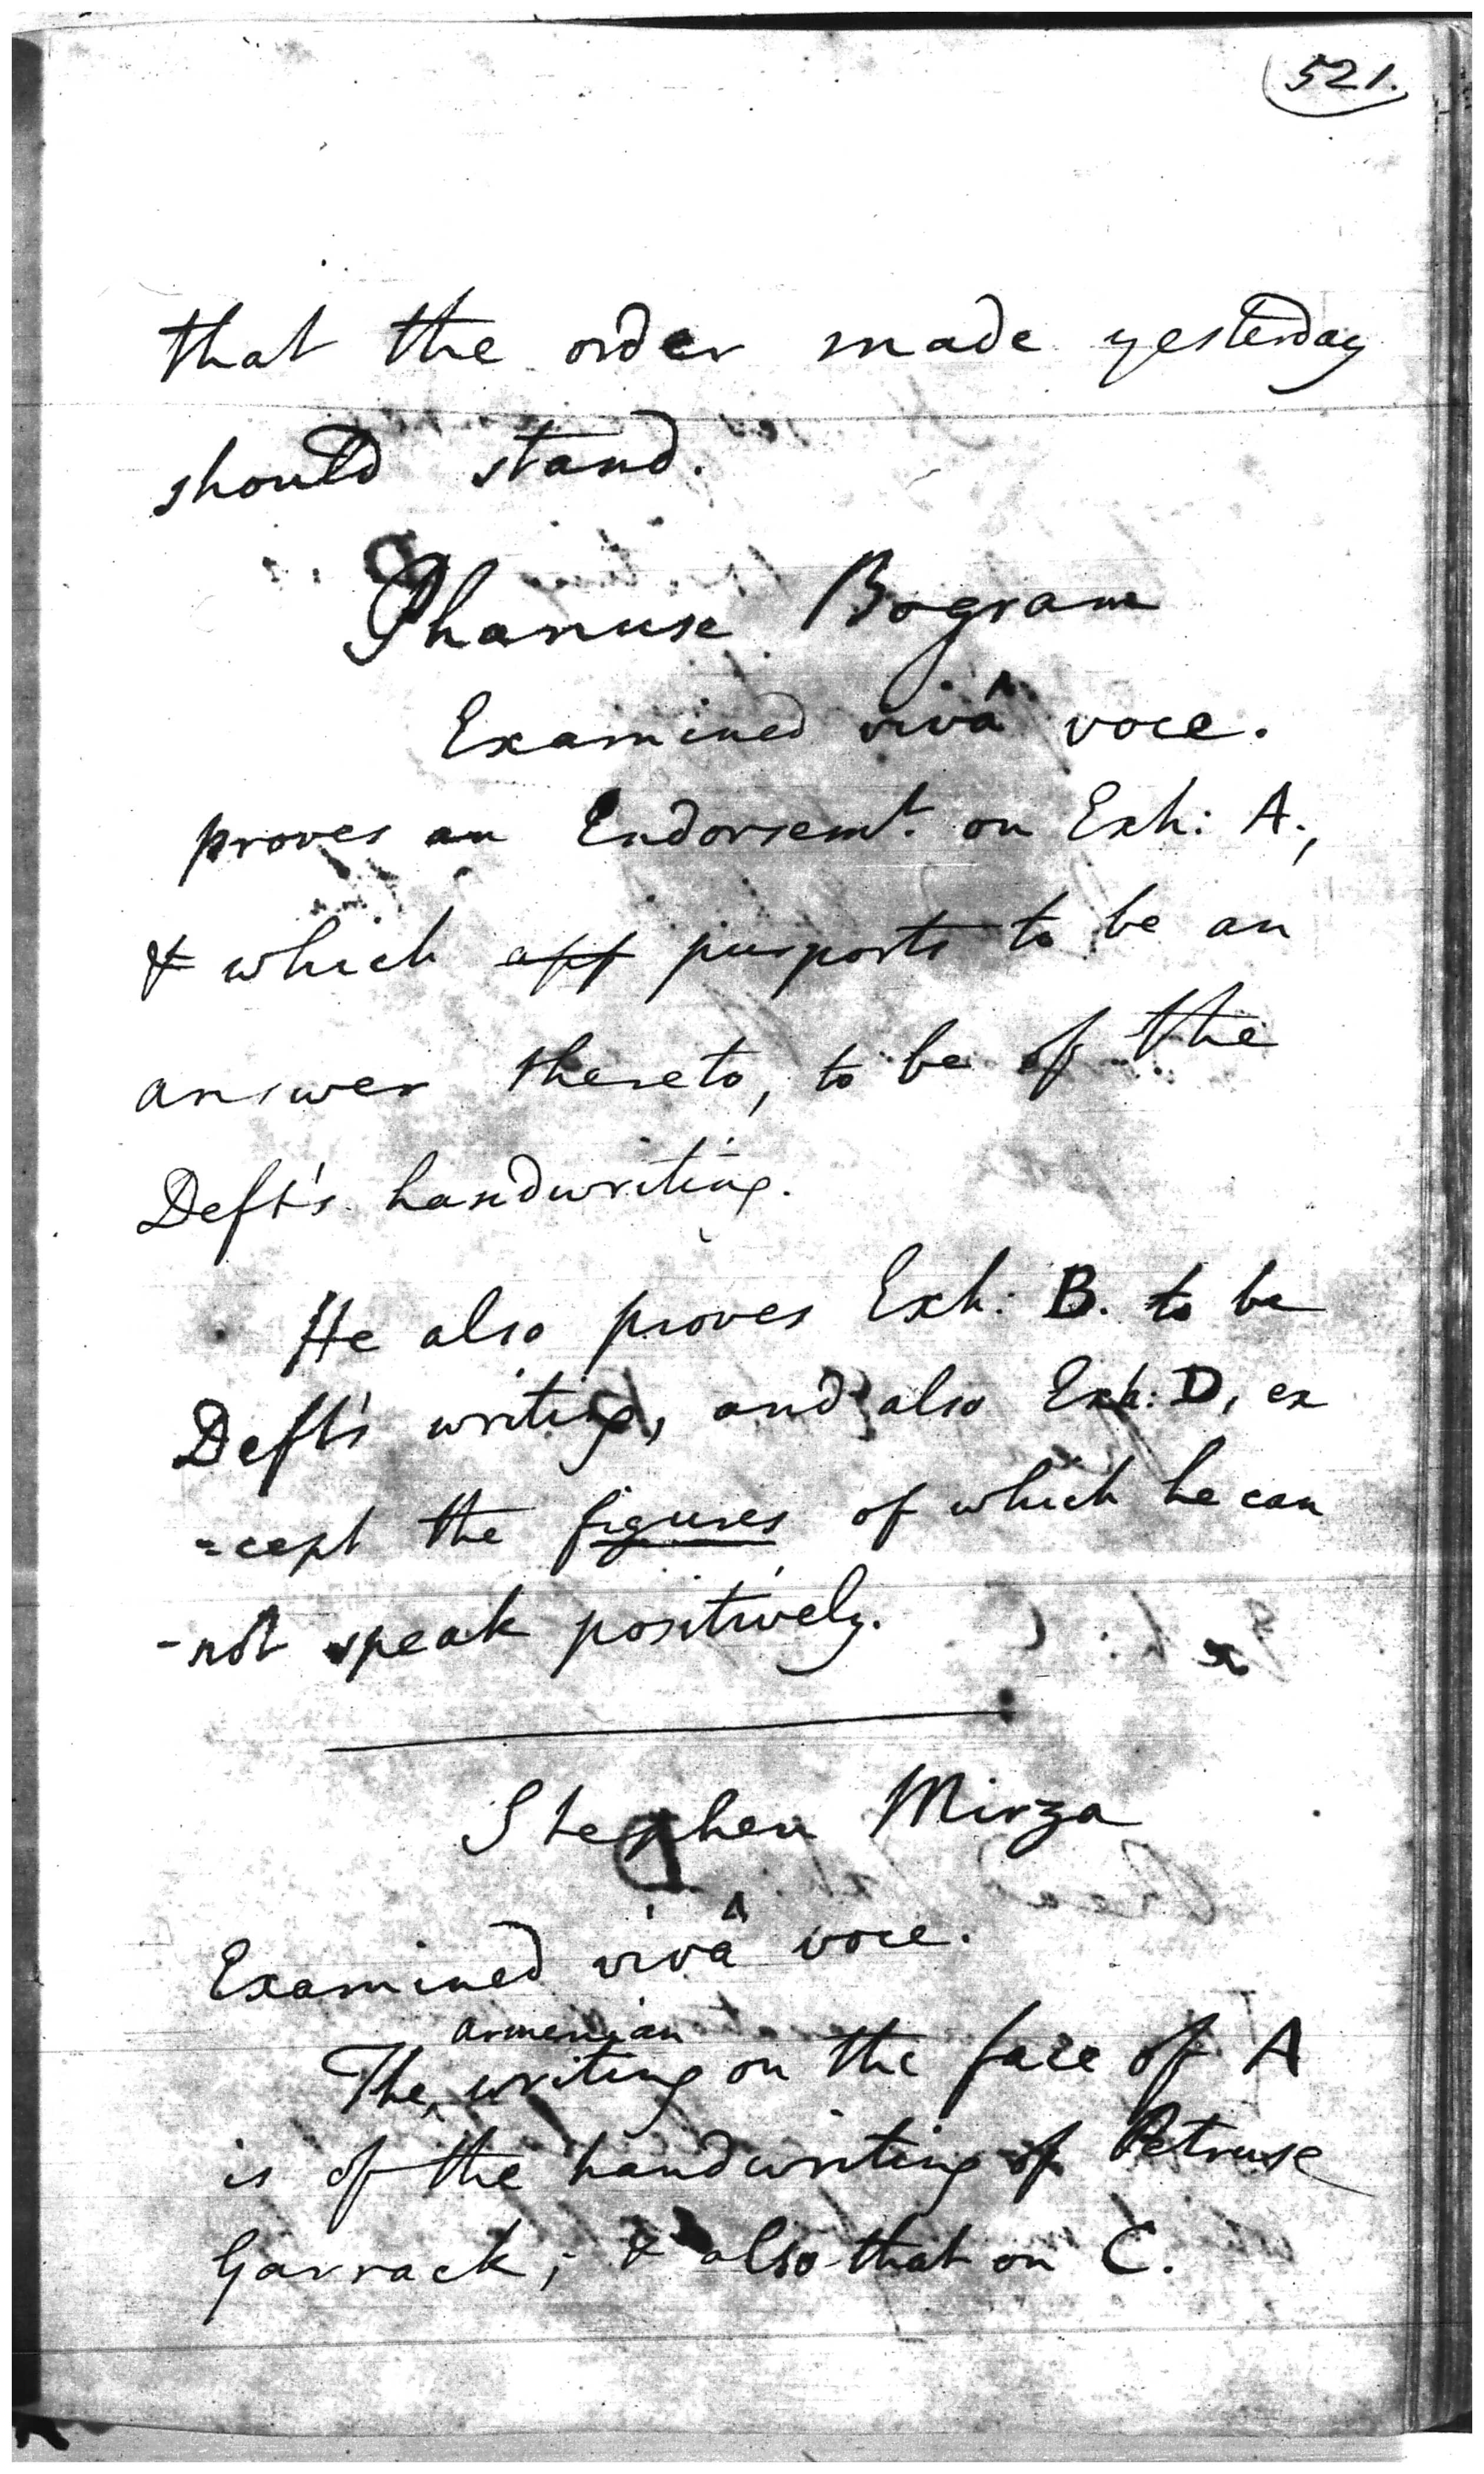 521.
that the order made yesterday
should stand.
Phanuse Bogram
Examined vivâ voce.
proves an Endorsemt. on Exh: A.,
& which app purports to be an
answer thereto, to be of the
Deft's handwriting.
He also proves Exh: B. to be
Deft's writing, and also Exh: D, ex
=cept the figures of which he can
-not speak positively.
Stephen Mirza
Examined vivâ voce.
armenian
The writing on the face of A
is of the handwriting of Petruse
Garrack; & also that on C.